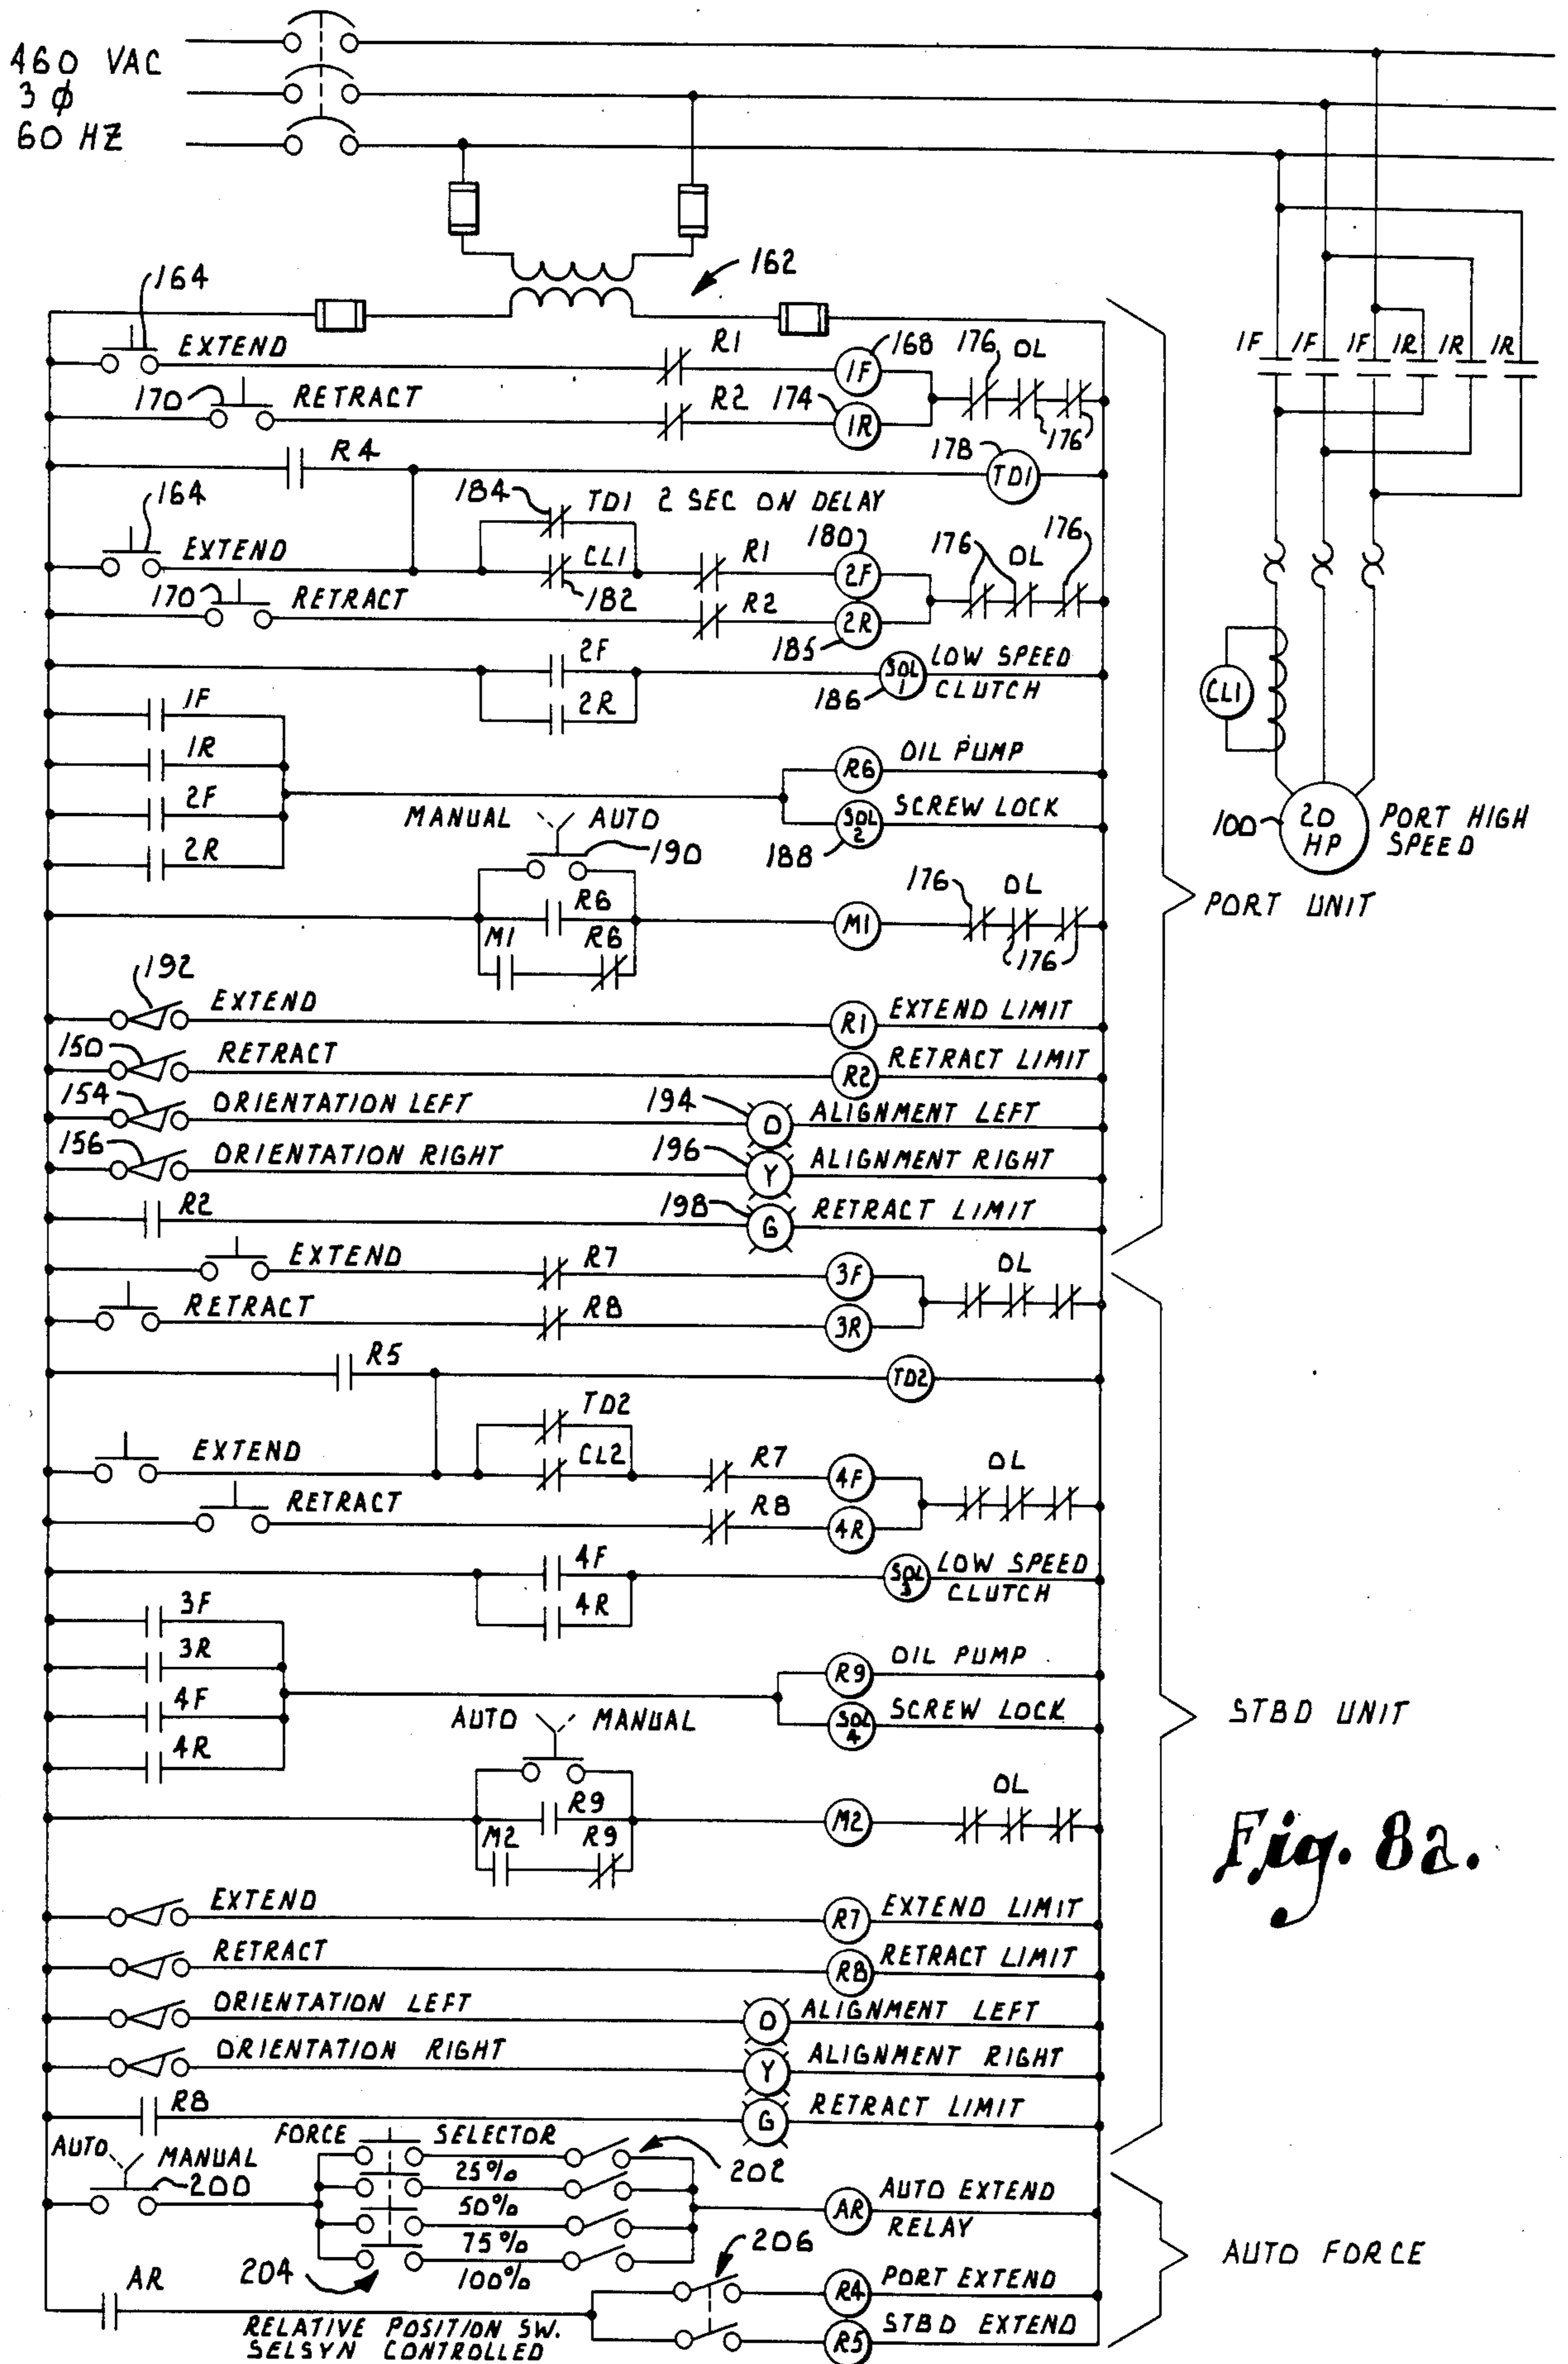 460 VAC
3 φ
60 HZ
162
164
EXTEND
R1
168
1F
176
OL
1F
1F
1F
1R
1R
1R
170
RETRACT
R2
174
1R
176
R4
178
TD1
164
184
TD1 2 SEC ON DELAY
EXTEND
CL1
182
R1
180
2F
176
OL
176
170
RETRACT
R2
2R
185
2F
2R
SOL 1
186
LOW SPEED
CLUTCH
CL1
1F
1R
2F
2R
R6
OIL PUMP
SOL 2
188
SCREW LOCK
100
20
HP
PORT HIGH
SPEED
MANUAL
AUTO
190
R6
M1
R6
M1
176
OL
176
PORT UNIT
192
EXTEND
R1
EXTEND LIMIT
150
RETRACT
R2
RETRACT LIMIT
154
ORIENTATION LEFT
194
O
ALIGNMENT LEFT
156
ORIENTATION RIGHT
196
Y
ALIGNMENT RIGHT
R2
198
G
RETRACT LIMIT
EXTEND
R7
3F
OL
RETRACT
R8
3R
R5
TD2
TD2
EXTEND
CL2
R7
4F
OL
RETRACT
R8
4R
4F
4R
SOL 3
LOW SPEED
CLUTCH
3F
3R
4F
4R
R9
OIL PUMP
SOL 4
SCREW LOCK
STBD UNIT
AUTO
MANUAL
R9
M2
R9
M2
OL
Fig. 8a.
EXTEND
R7
EXTEND LIMIT
RETRACT
R8
RETRACT LIMIT
ORIENTATION LEFT
O
ALIGNMENT LEFT
ORIENTATION RIGHT
Y
ALIGNMENT RIGHT
R8
G
RETRACT LIMIT
AUTO
MANUAL
200
FORCE
SELECTOR
25%
50%
75%
100%
202
204
AR
AUTO EXTEND
RELAY
AUTO FORCE
206
AR
RELATIVE POSITION SW.
SELSYN CONTROLLED
R4
PORT EXTEND
R5
STBD EXTEND